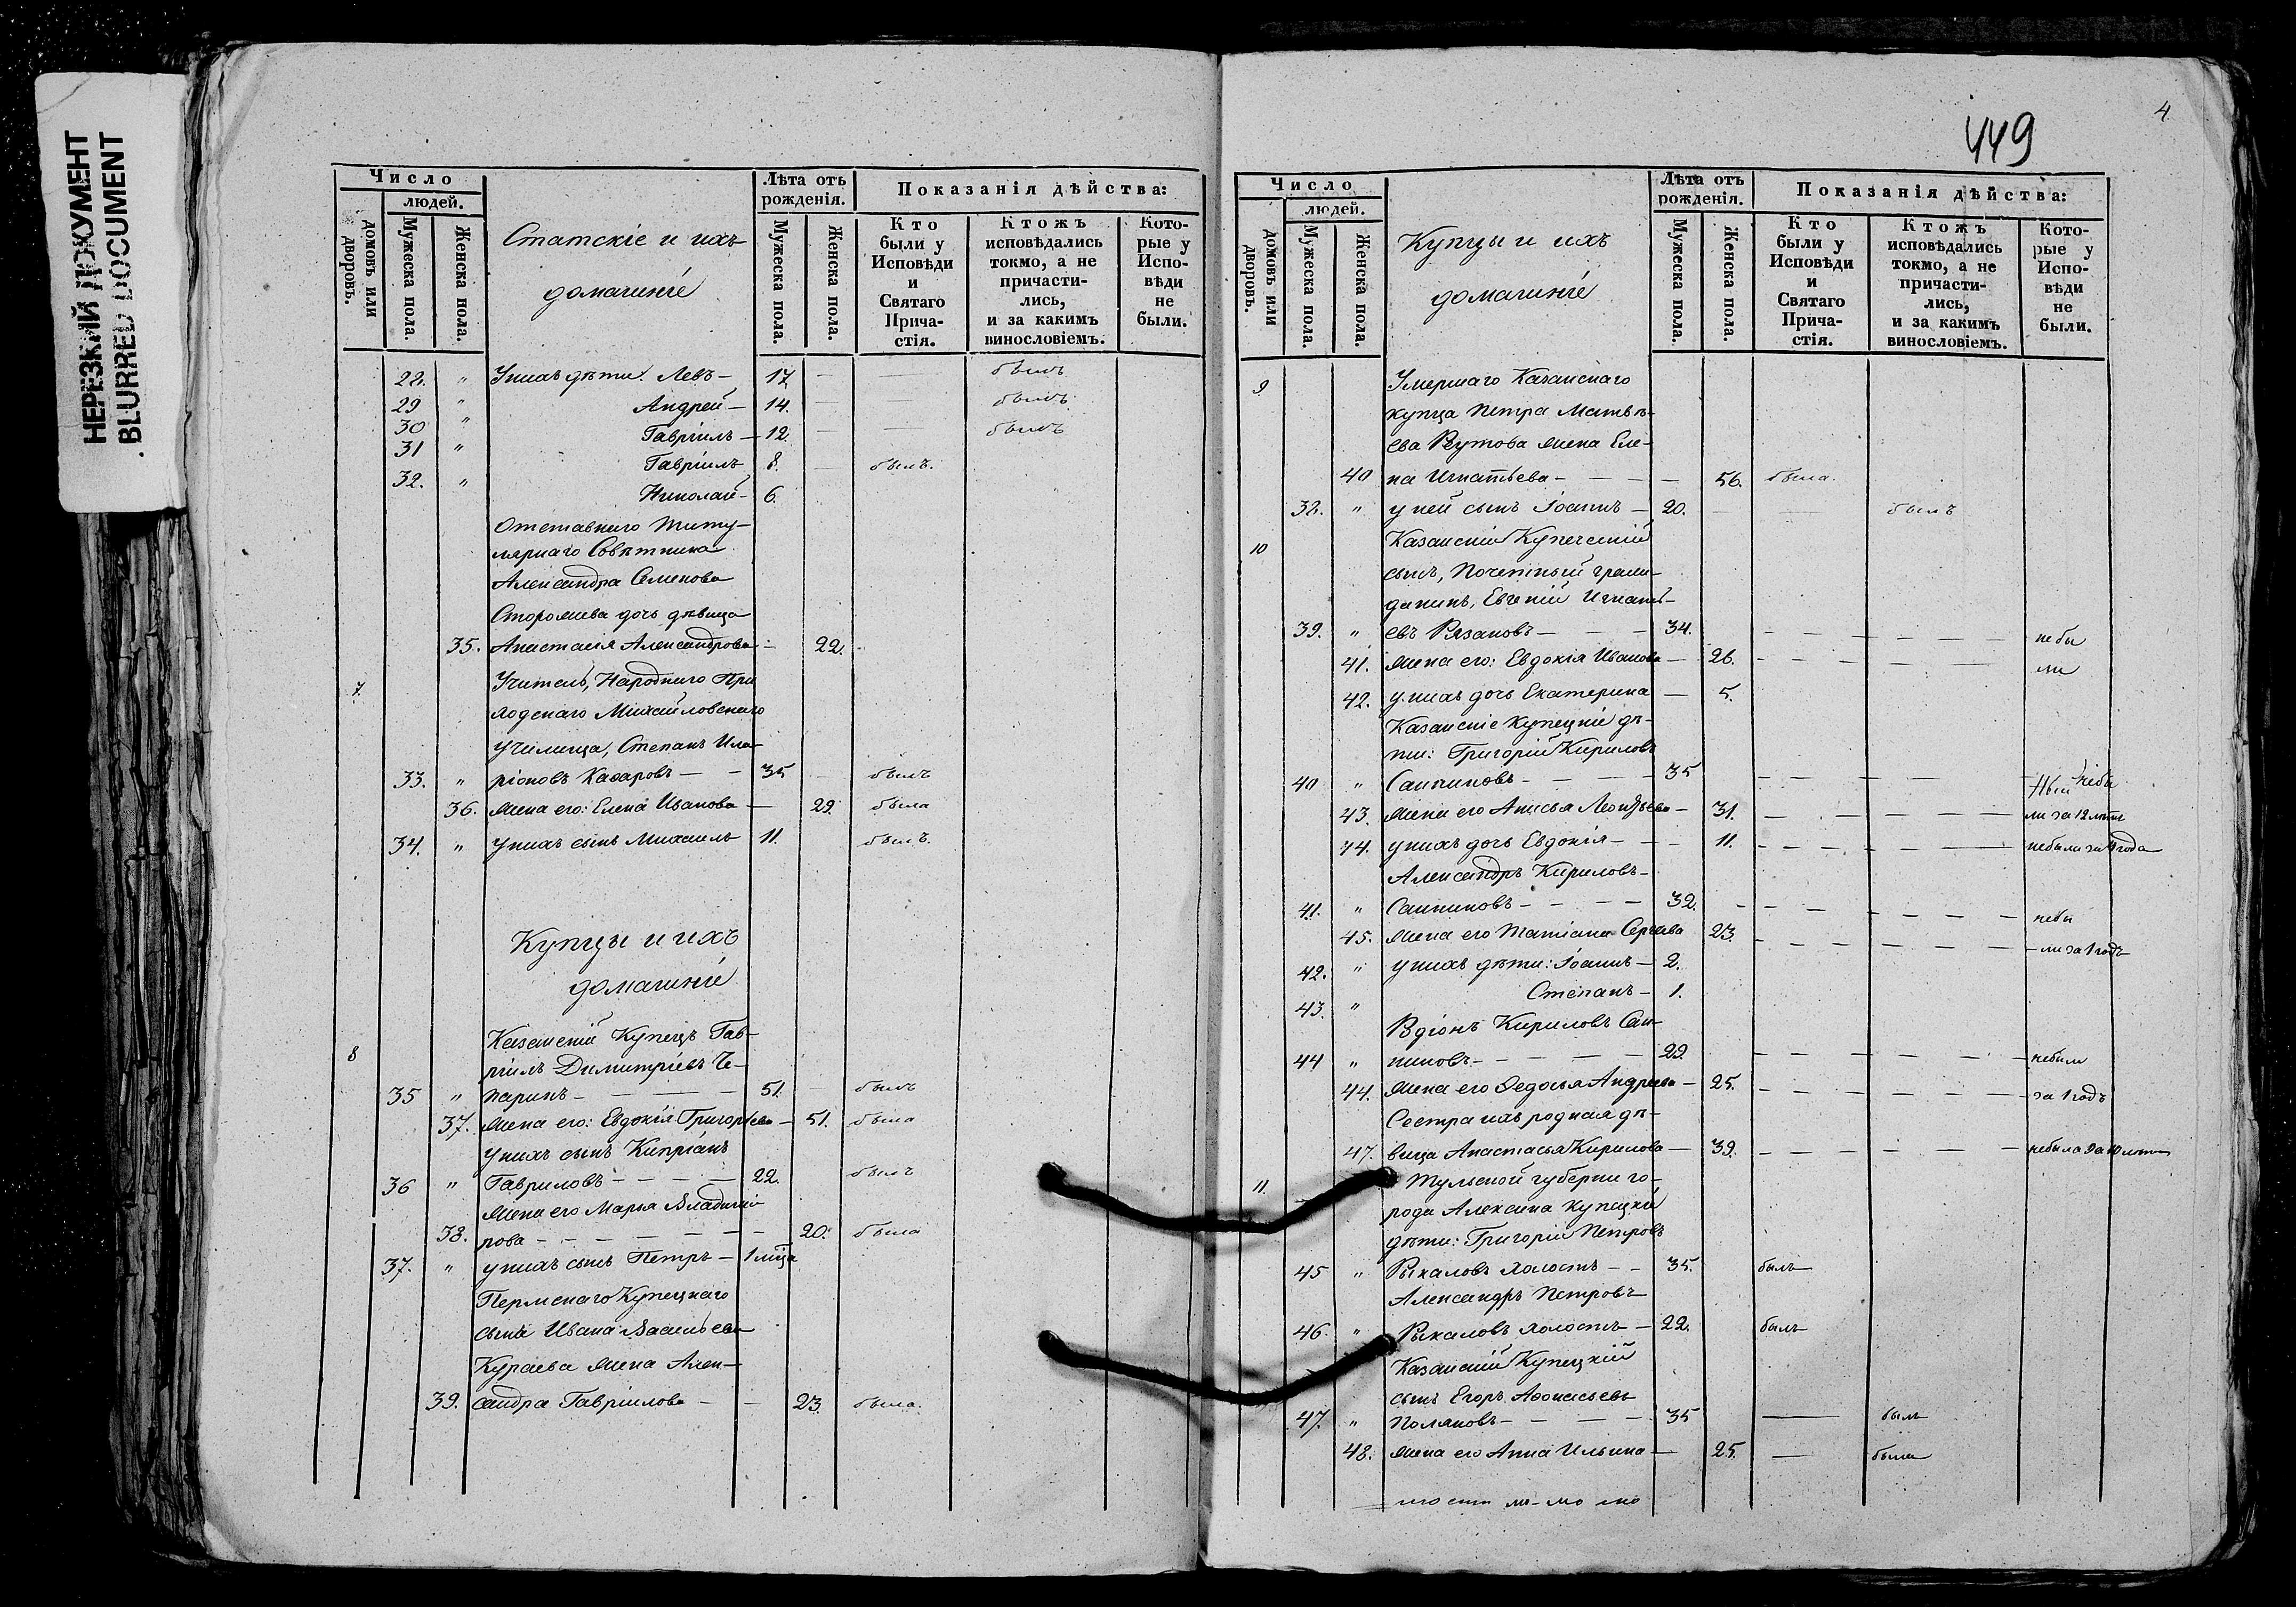 НЕРЕЗКИЙ ДОКУМЕНТ
BLURRED DOCUMENT
Число
людей.
домовъ или дворовъ.
Мужеска пола.
Женска пола.
Статскіе и ихъ
домашніе
Лѣта отъ рожденія.
Мужеска пола.
Женска пола.
Показанія дѣйства:
Кто были у Исповѣди и Святаго Причастія.
Ктожъ исповѣдались токмо, а не причастились, и за какимъ винословіемъ.
Которые у Исповѣди не были.
28. " У нихъ дѣти: Левъ — 17 — — былъ
29 " Андрей — 14. — — былъ
30 " Гавріилъ — 12. — — былъ
31 " Гавріилъ 8. — былъ.
32. " Николай — 6.
Отставнаго Титу-
лярнаго Совѣтника
Александра Семенова
Сторожева дочь дѣвица
35. Анастасія Александрова — 22.
7. Учитель, Народнаго При
ходскаго Михайловскаго
училища, Степанъ Ила-
33. " ріоновъ Казаровъ — — 35 — былъ
36. Жена его: Елена Иванова — 29. была
34. " у нихъ сынъ Михаилъ 11. былъ.
Купцы и ихъ
домашніе
8 Казанскій Купецъ Гав-
ріилъ Димитріевъ Че-
35 " паринъ — — — 51. былъ
37. Жена его: Евдокія Григорьева — 51. была
у нихъ сынъ Кипріанъ
36 " Гавриловъ — — — — 22. былъ
Жена его Марья Владимі-
38. рова — — — — — — 20. была
37. " у нихъ сынъ Петръ — 1 мѣца
Пермскаго Купецкаго
сына Ивана Васильева
Кураева жена Алек-
39. сандра Гавріилова — — 23. была.
449
4
Число
людей.
домовъ или дворовъ.
Мужеска пола.
Женска пола.
Купцы и ихъ
домашніе
Лѣта отъ рожденія.
Мужеска пола.
Женска пола.
Показанія дѣйства:
Кто были у Исповѣди и Святаго Причастія.
Ктожъ исповѣдались токмо, а не причастились, и за какимъ винословіемъ.
Которые у Исповѣди не были.
9 Умершаго Казанскаго
купца Петра Матвѣ-
ева жена Еле-
40 на Игнатьева — — — — 56. была.
38. " у ней сынъ Іоаннъ — 20. — — былъ
10 Казанскій Купеческій
сынъ, Почетный граж-
данинъ, Евгеній Игнать-
39. " евъ Рязановъ — — — 34. — — — — — — небы
41. Жена его: Евдокія Иванова — 26. — — — — — ли
42. у нихъ дочь Екатерина — 5.
Казанскіе купецкіе дѣ-
ти: Григорій Кириловъ
40 " Санниковъ — — — — 35 — — — — небы
43. Жена его Анисья Леонтьева — 31. — — — — — ли за 12 лѣтъ
44. у нихъ дочь Евдокія — — — 11. — — — — — небыли за 4 года
Александръ Кириловъ —
41. " Санниковъ — — — — 32. — — — — — — — небы
45. Жена его Татіана Сергѣева 23. — — — — — — ли за 1 годъ
42. " у нихъ дѣти: Іоаннъ — 2.
43. " Степанъ — 1.
Вдіонъ Кириловъ Сан-
44 " никовъ — — — — — 29. — — — — — — небыли
44. Жена его Федосья Андреева — 25. — — — — — — за 1 годъ
Сестра ихъ родная дѣ-
47. вица Анастасья Кирилова — 39. — — — — — — небыла за 10 лѣтъ
11. Тульской губерніи го-
рода Алексина купецкіи
дѣти: Григорій Петровъ
45 " Рыкаловъ холостъ — — 35. былъ
Александръ Петровъ
46. " Рыкаловъ холостъ — 22. былъ
Казанскій Купецкій
сынъ Егоръ Афонасьевъ
47. " Поляковъ — — — — — 35 — былъ
48. Жена его Анна Ильина — 25. — была